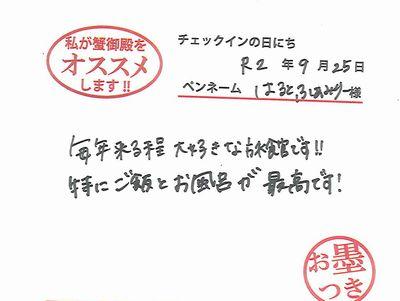 私が蟹御殿を
オススメ
します!!
チェックインの日にち
R2 年 9 月 25日
ペンネーム はるとふぁみりー様
毎年来る程 大好きな旅館です!!
特にご飯とお風呂が最高です!
お墨
つき